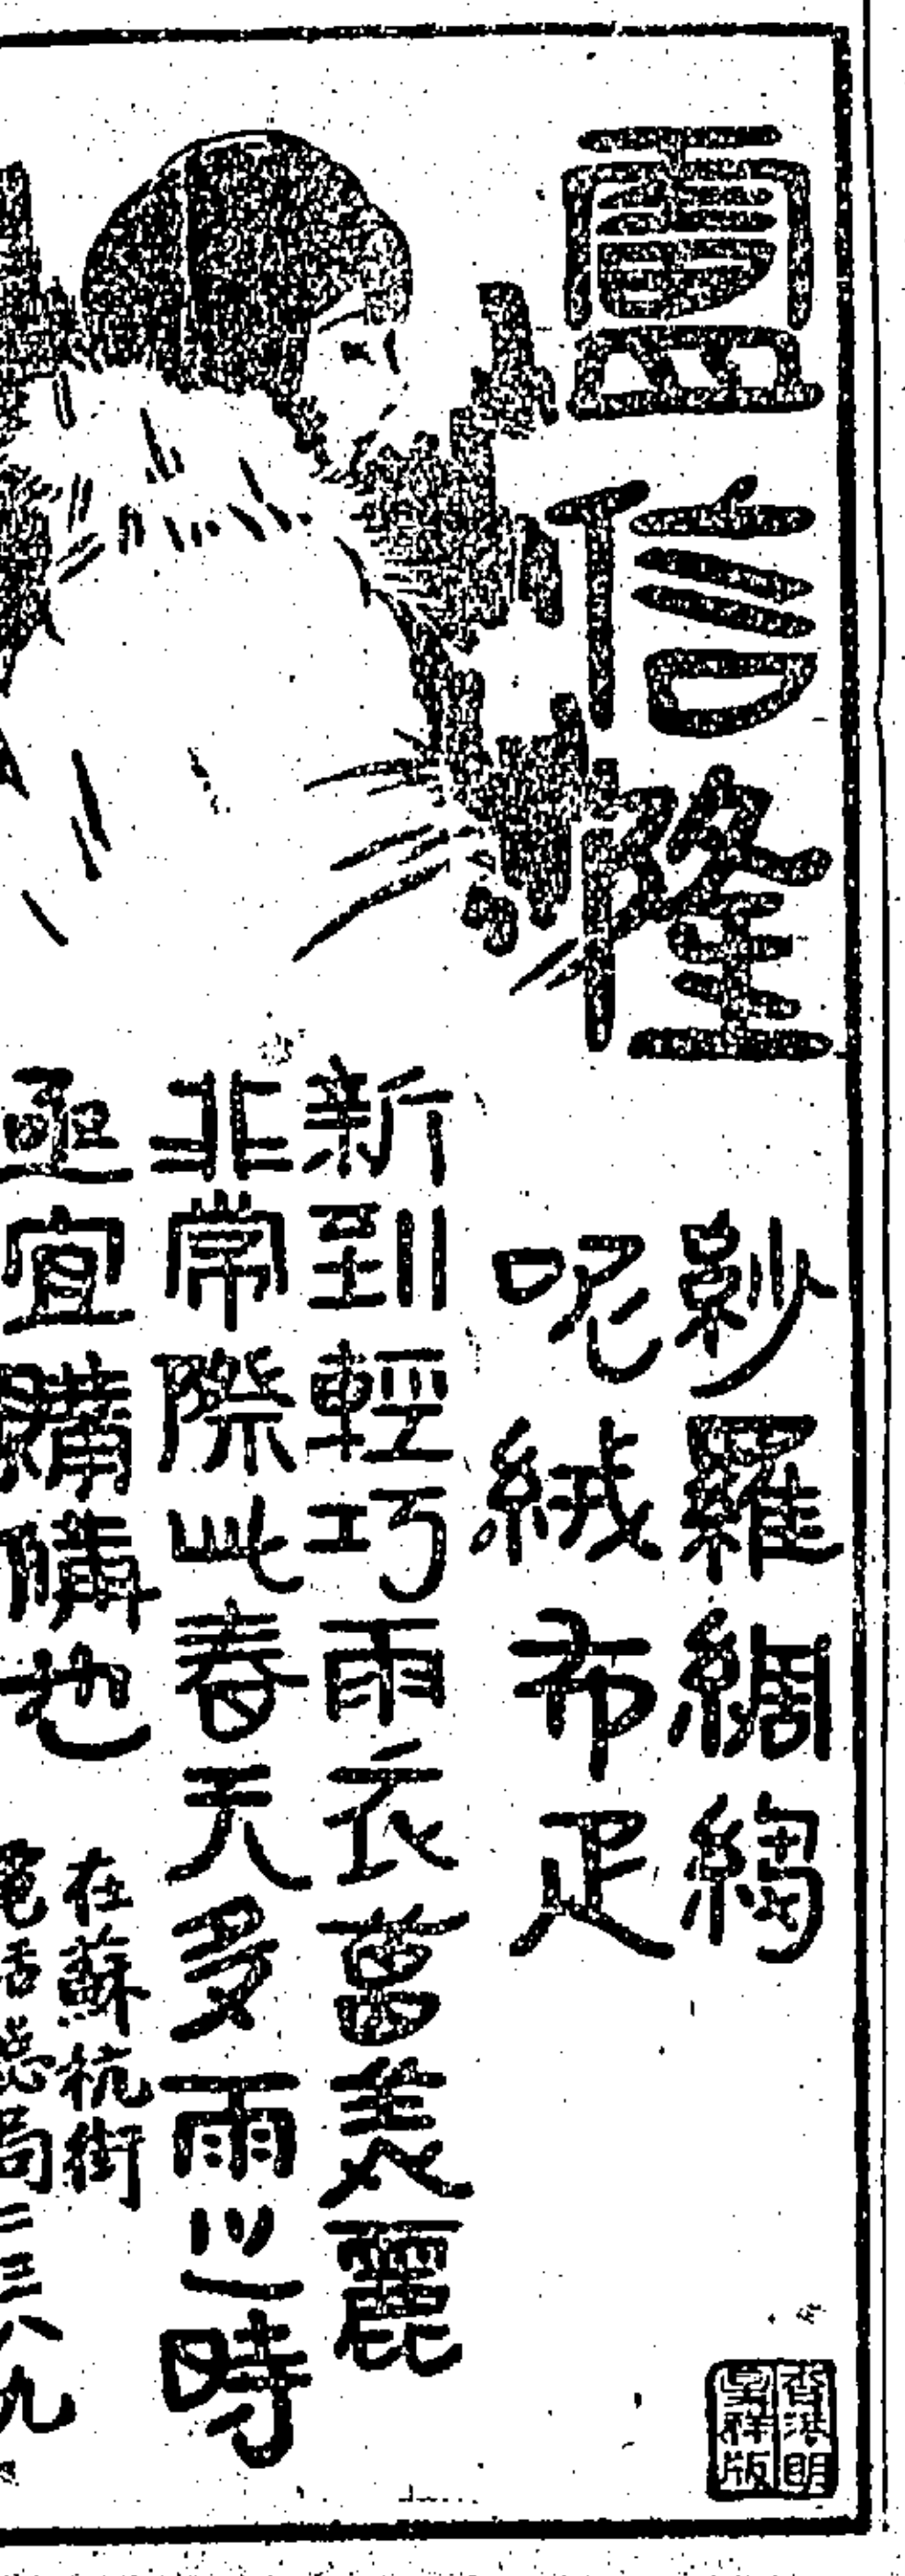 信隆
紗羅綢縐
呢絨布疋
新到輕巧雨衣美麗
非常際此春天多雨之時
亟宜購備也
在蘇杭街
電話總局二三八九
香港明
祥版